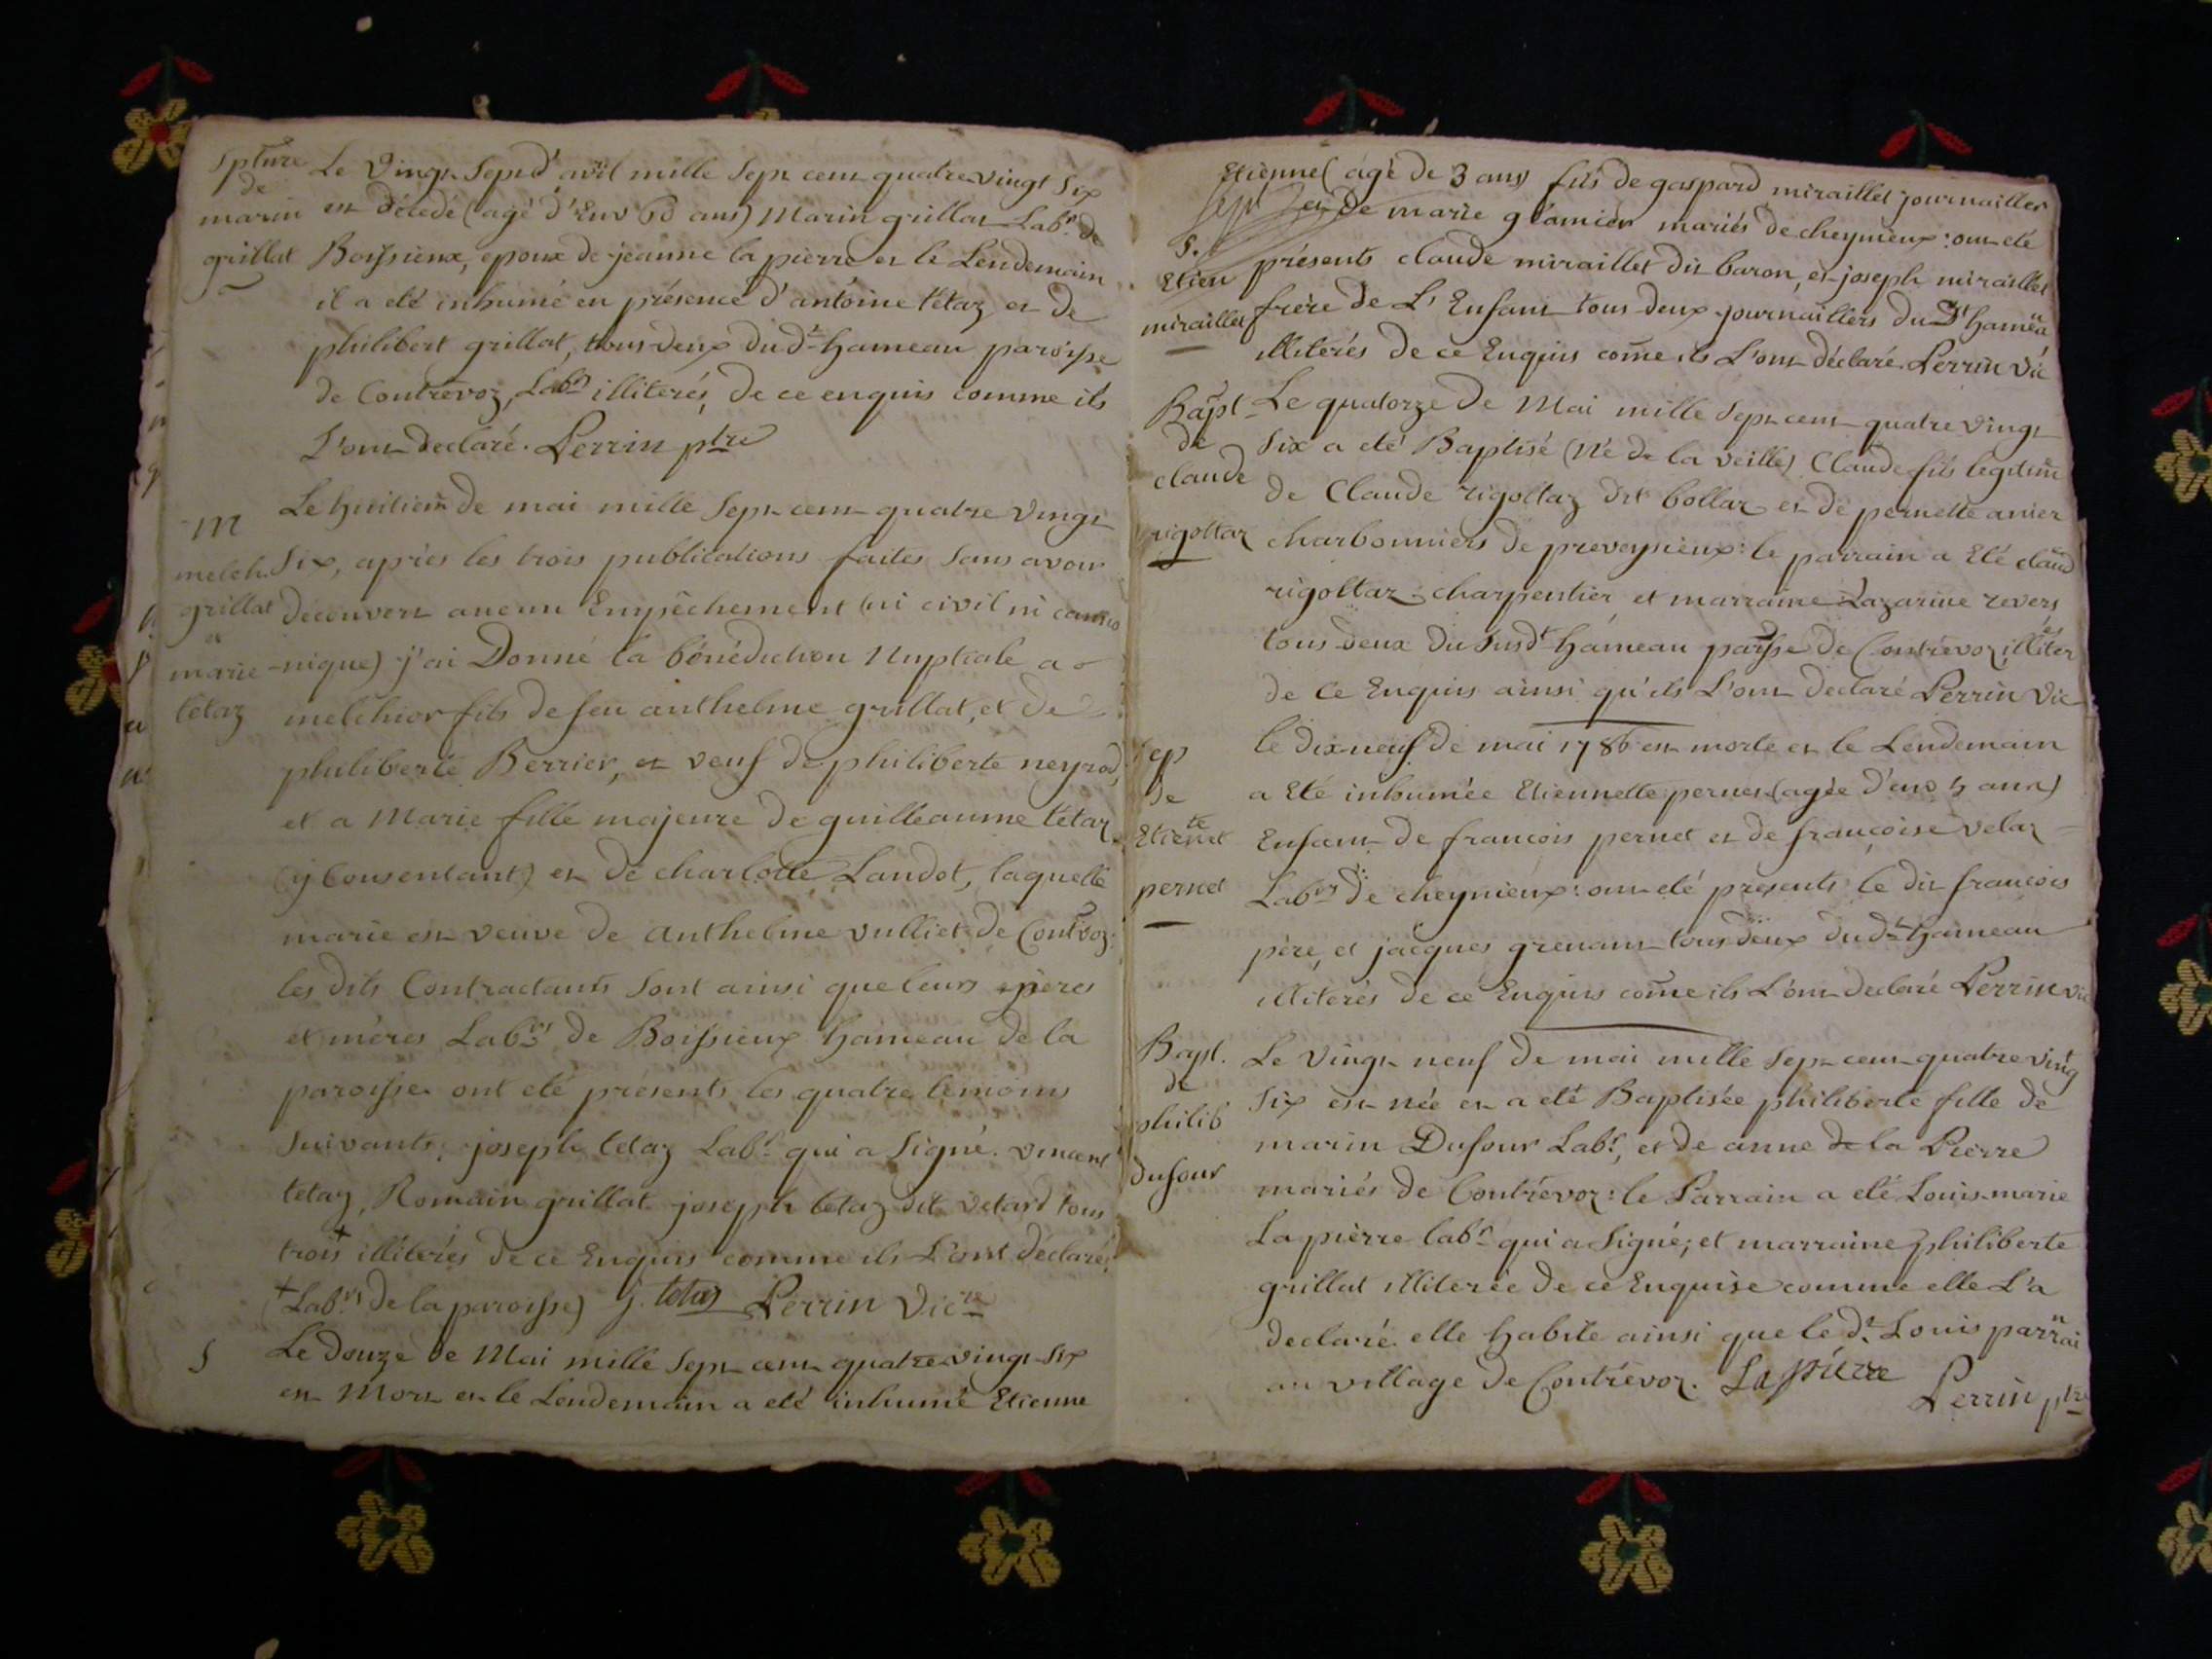 Spture
de
marin
grillat
Le vingt Sept d' avril mille Sept cent quatre vingt Six
est décédé (agé d'Env 60 ans) Marin grillat Labr. de
Boissieux, epoux de jeanne la pierre et le Lendemain
il a eté inhumé en présence d'antoine tétaz et de
philibert grillat, tous deux du dt hameau paroisse
de Contrevoz, Labrs illiterés, de ce enquis comme ils
L'ont declaré. Perrin ptre
M
melch.
grillat
et
marie
tetaz
Le huitiem de mai mille Sept cent quatre vingt
Six, après les trois publications faites Sans avoir
découvert aucun Empêchement (ni civil ni cano
-nique) j'ai Donné la bénédiction Nuptiale a
melchior fils de feu anthelme grillat, et de
philiberte Berrier, et veuf de philiberte neyrod,
et a Marie fille majeure de guilleaume tétaz
(y Consentant) et de charlotte Landot, laquelle
marie est veuve de Anthelme vulliet de Contvoz:
les dits Contractants Sont ainsi que leurs pères
et mères Labrs de Boissieux hameau de la
paroisse ont eté presents les quatre temoins
Suivants; joseph tetaz Labr. qui a Signé. vincent
tetaz, Romain grillat joseph tetaz dit vetard tous
trois + illitérés de ce Enquis comme ils L'ont déclaré,
(+ Labrs de la paroisse) j. tétaz Perrin Vicre
S
Le douze de Mai mille Sept cent quatre vingt Six
est Mort et le Lendemain a eté inhumé Etienne
Etienne (agé de 3 ans) fils de gaspard miraillet journaillier
et de marie glamier mariés de cheynieux: ont eté
S.
Etien
miraillet
présents claude miraillet dit baron, et joseph miraillet
frère de L'Enfant tous deux journailliers du Dt hamea
illiterés de ce Enquis come ils L'ont déclaré. Perrin Vic
Bapt
de
claude
rigottaz
Le quatorze de Mai mille Sept cent quatre vingt
Six a eté Baptisé (Né de la veille) Claude fils legitim
de Claude rigottaz dit bollaz et de pernette anier
charbonniers de preveyzieux: le parrain a Eté claud
rigottaz charpentier et marraine Lazarine revers
tous deux du susdt hameau parsse de Contrévoz, illiter
de Ce Enquis ainsi qu'ils L'ont declaré Perrin Vic
Sep
de
Etienette
pernet
le dix neuf de mai 1786 est morte et le Lendemain
a Eté inhumée Etiennette pernet (agée d'env 5 ans)
Enfant de francois pernet et de françoise velaz
Labrs de cheynieux: ont eté présents le dit francois
père, et jacques grenant tous deux du dt hameau
illiterés de ce Enquis come ils L'ont declaré Perrin vic
Bapt.
de
philib
dufour
Le vingt neuf de mai mille Sept cent quatre vingt
Six est née et a eté Baptisée philiberte fille de
marin Dufour Labr, et de anne de la Pierre
mariés de Contrévoz: le Parrain a eté Louis marie
La pierre labr qui a Signé; et marraine philiberte
grillat illiterée de ce Enquise comme elle L'a
declaré elle habite ainsi que le dt. Louis parrain
au village de Contrévoz. La pierre
Perrin ptre